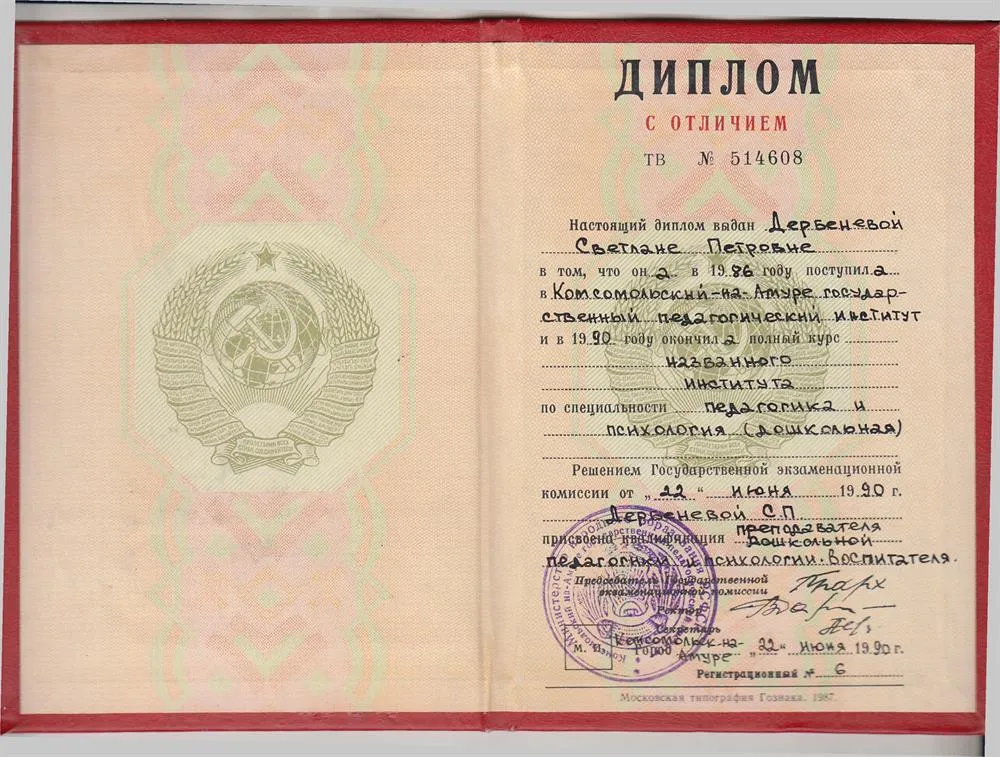 ДИПЛОМ
С ОТЛИЧИЕМ
ТВ № 514608
Настоящий диплом выдан Дербеневой
Светлане Петровне
в том, что он а в 1986 году поступил а
в Комсомольский-на-Амуре государ-
ственный педагогический институт
и в 1990 году окончил а полный курс
названного
института
по специальности педагогика и
психология (дошкольная)
Решением Государственной экзаменационной
комиссии от „22“ июня 1990 г.
Дербеневой С.П.
присвоена квалификация преподавателя
дошкольной
педагогики и психологии. Воспитателя.
Председатель Государственной
экзаменационной комиссии
Ректор
Секретарь
М. П. Город Комсомольск-на-
Амуре „22“ июня 1990 г.
Регистрационный № 6
Московская типография Гознака. 1987.
ПРОЛЕТАРИИ ВСЕХ
СТРАН, СОЕДИНЯЙТЕСЬ!